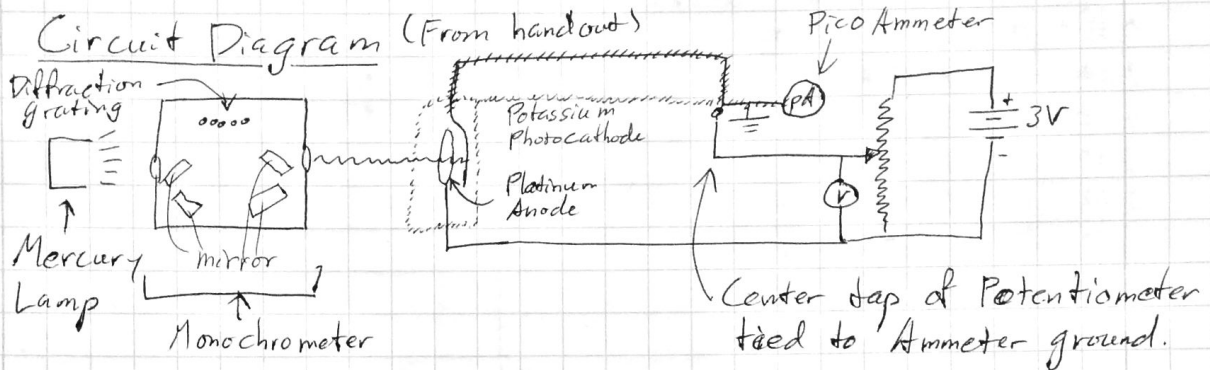 Circuit Diagram (From handout)
Pico Ammeter
Diffraction
grating
Potassium
Photocathode
pA
+
3V
-
Platinum
Anode
V
mirror
Mercury
Lamp
Monochrometer
Center tap of Potentiometer
tied to Ammeter ground.